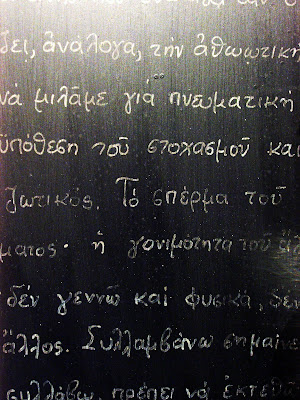 δει, ἀνάλογα, τήν ἀθωωτική
νά μιλᾶμε γιά πνευματική
ὑπόθεση τοῦ στοχασμοῦ και
ζωτικός. Τό σπέρμα τοῦ
ματος· ἡ γονιμότητα τοῦ
δέν γεννῶ καί φυσικά, δέν
ἄλλος. Συλλαμβάνω σημαίνε
συλλάβω, πρέπει νά ἐκτεθῶ